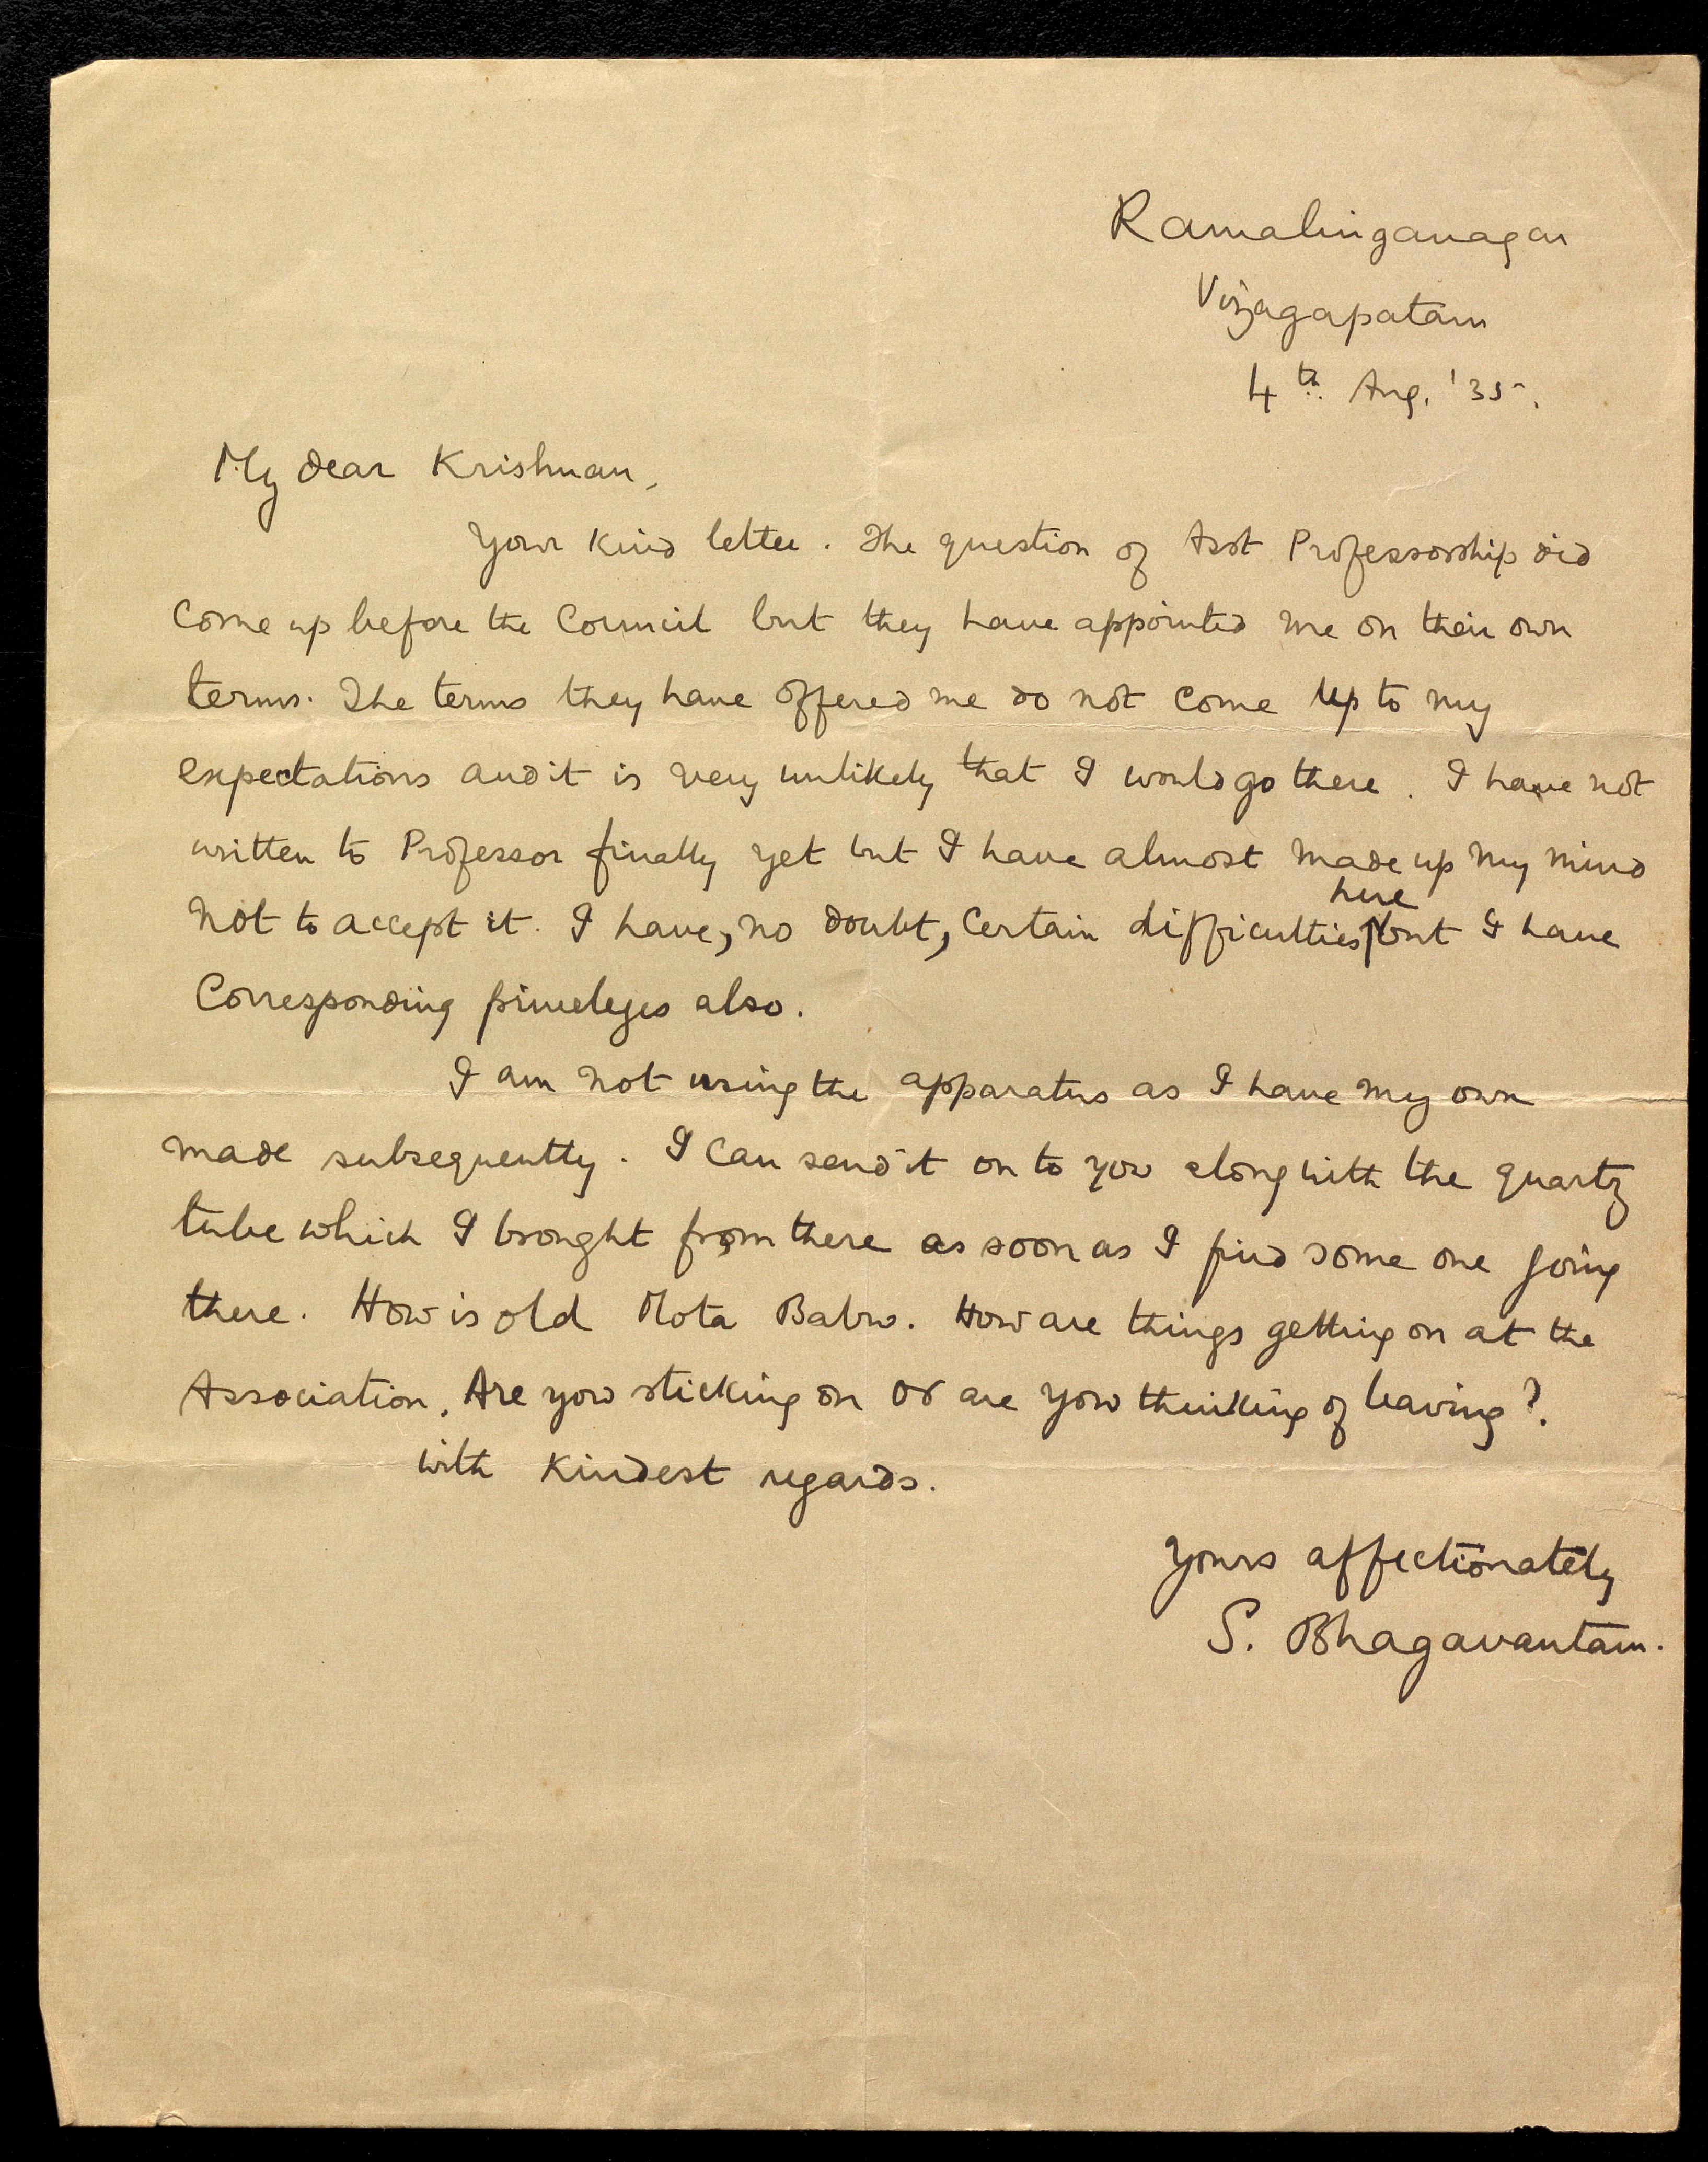 Ramalinganagar
Vizagapatam
4th Aug. '35.
My dear Krishnan,
Your kind letter. The question of Asst Professorship did
come up before the Council but they have appointed me on their own
terms. The terms they have offered me do not come up to my
expectations and it is very unlikely that I would go there. I have not
written to Professor finally yet but I have almost made up my mind
here
not to accept it. I have, no doubt, certain difficulties but I have
corresponding priveleges also.
I am not using the apparatus as I have my own
made subsequently. I can send it on to you along with the quartz
tube which I brought from there as soon as I find some one going
there. How is old Mota Babu. How are things getting on at the
Association. Are you sticking on or are you thinking of leaving?.
with kindest regards.
Yours affectionately
S. Bhagavantam.